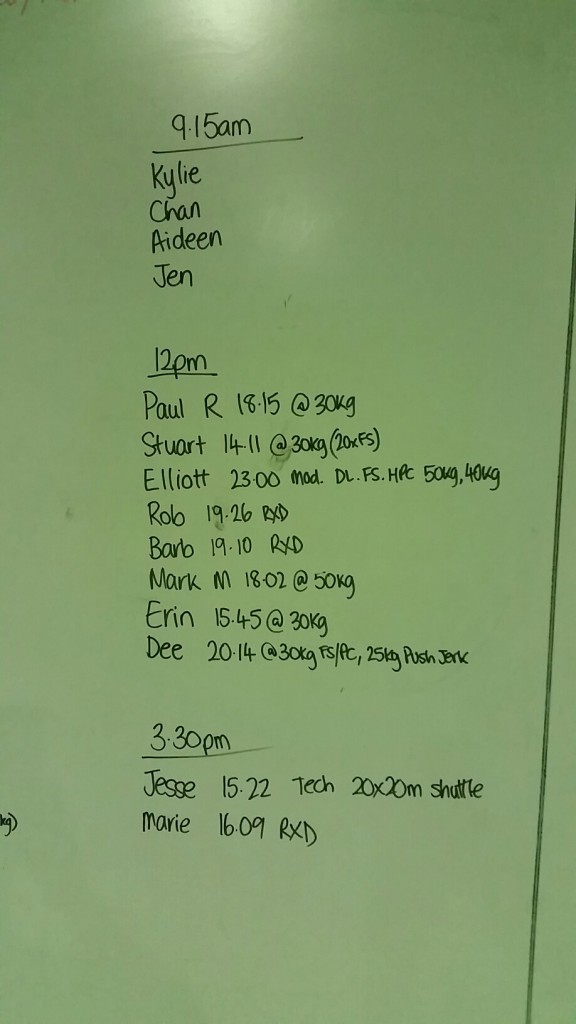 9.15am
Kylie
Chan
Aideen
Jen
12pm
Paul R 18.15 @30kg
Stuart 14.11 @30kg (20xFS)
Elliott 23.00 mod. DL.FS.HPC 50kg, 40kg
Rob 19.26 RXD
Barb 19.10 RXD
Mark M 18.02 @ 50kg
Erin 15.45 @ 30kg
Dee 20.14 @30kg FS/PC, 25kg Push Jerk
3.30pm
Jesse 15.22 Tech 20x20m shuttle
kg)
Marie 16.09 RXD